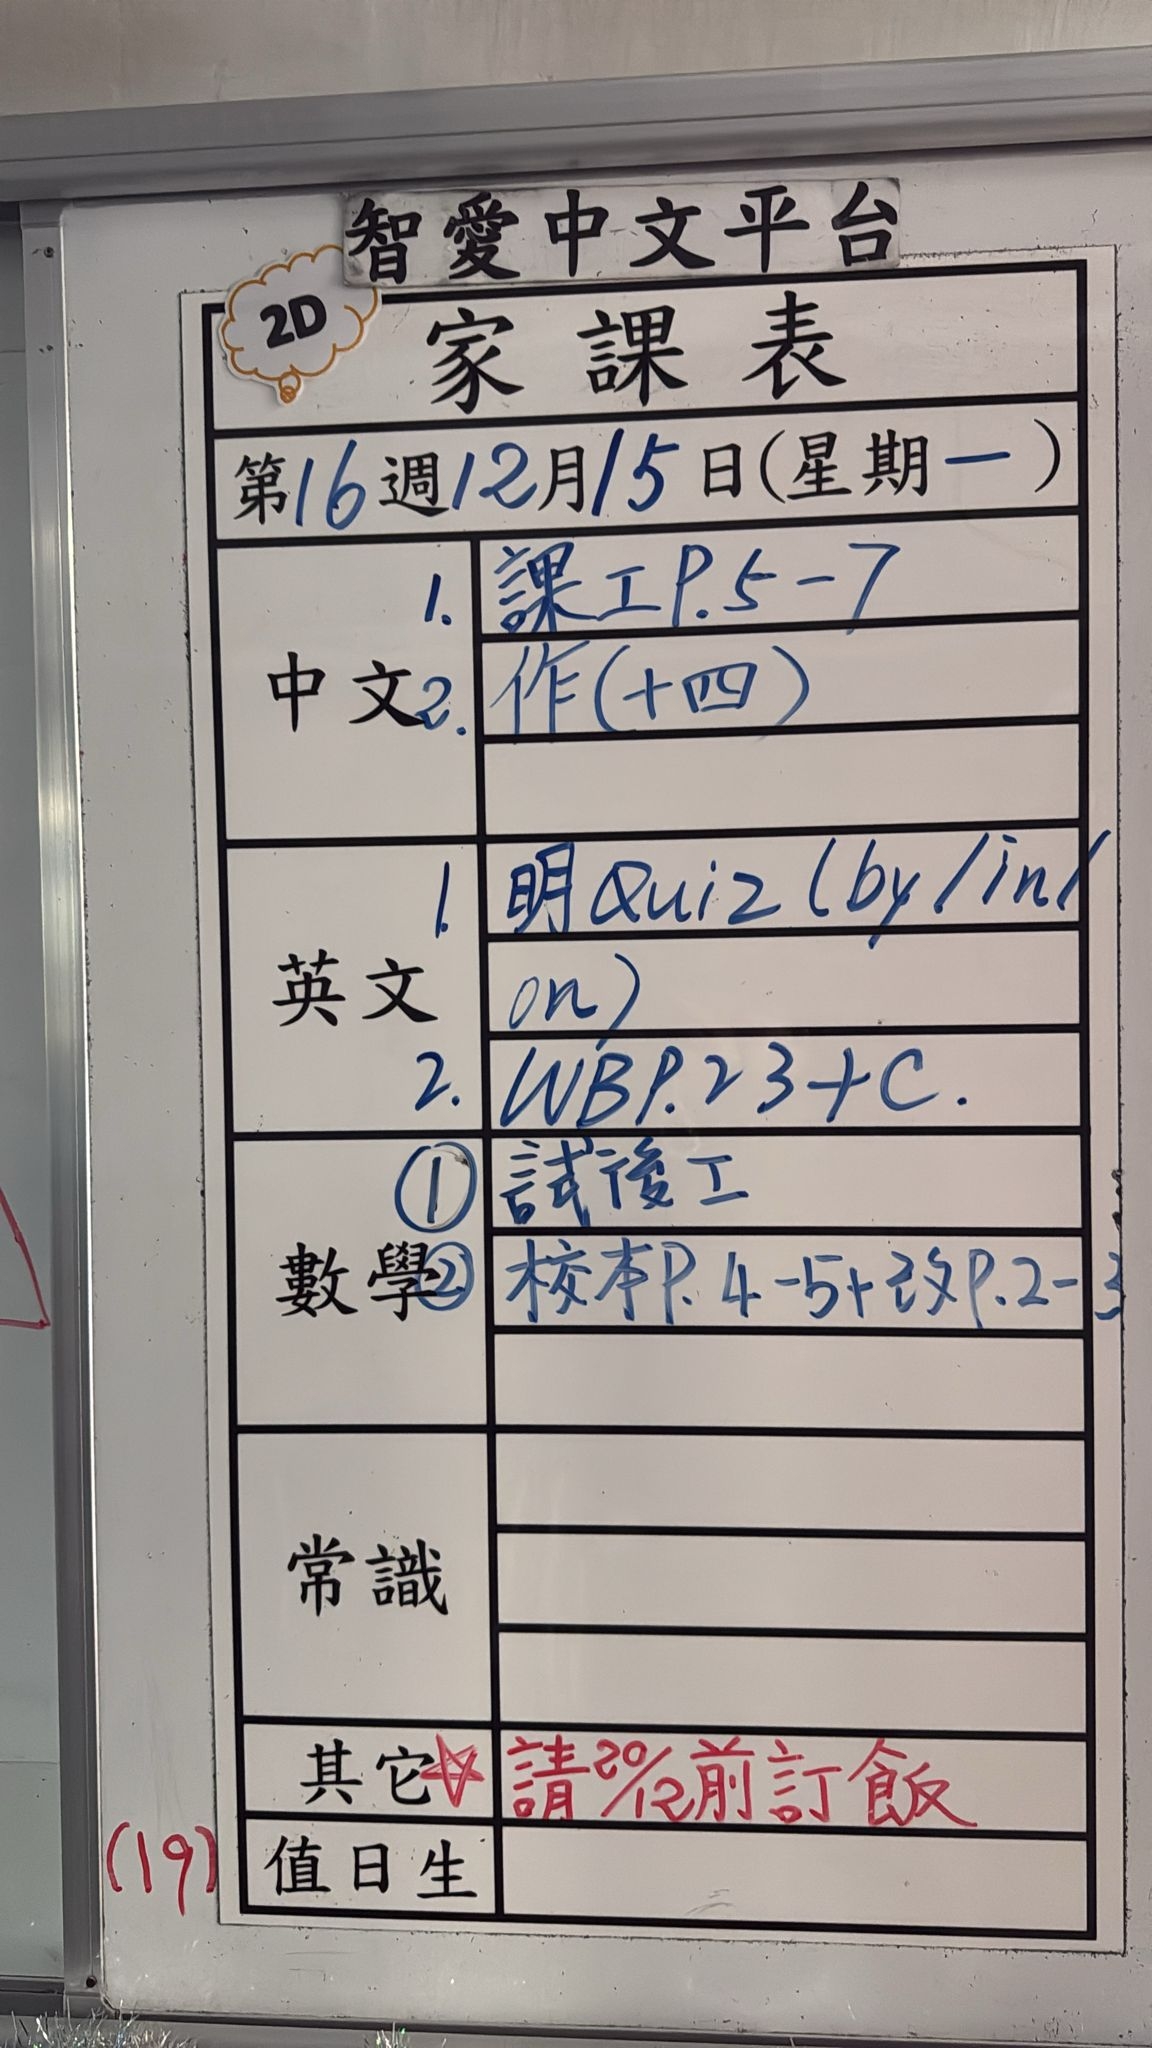 智愛中文平台
2D
家課表
第16週12月15日(星期一)
中文
1. 課工P.5-7
2. 作(十四)
英文
1. 明Quiz (by/in/
on)
2. WBP.23+C.
數學
① 試後工
② 校本P.4-5+改P.2-3
常識
其它☆請20/12前訂飯
(19)
值日生